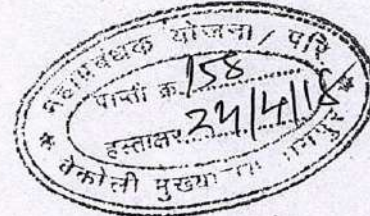 महाप्रबंधक योजना/ परि
पावती क्र. 158
हस्ताक्षर 24/4/18
* वेकोली मुख्या नागपुर *